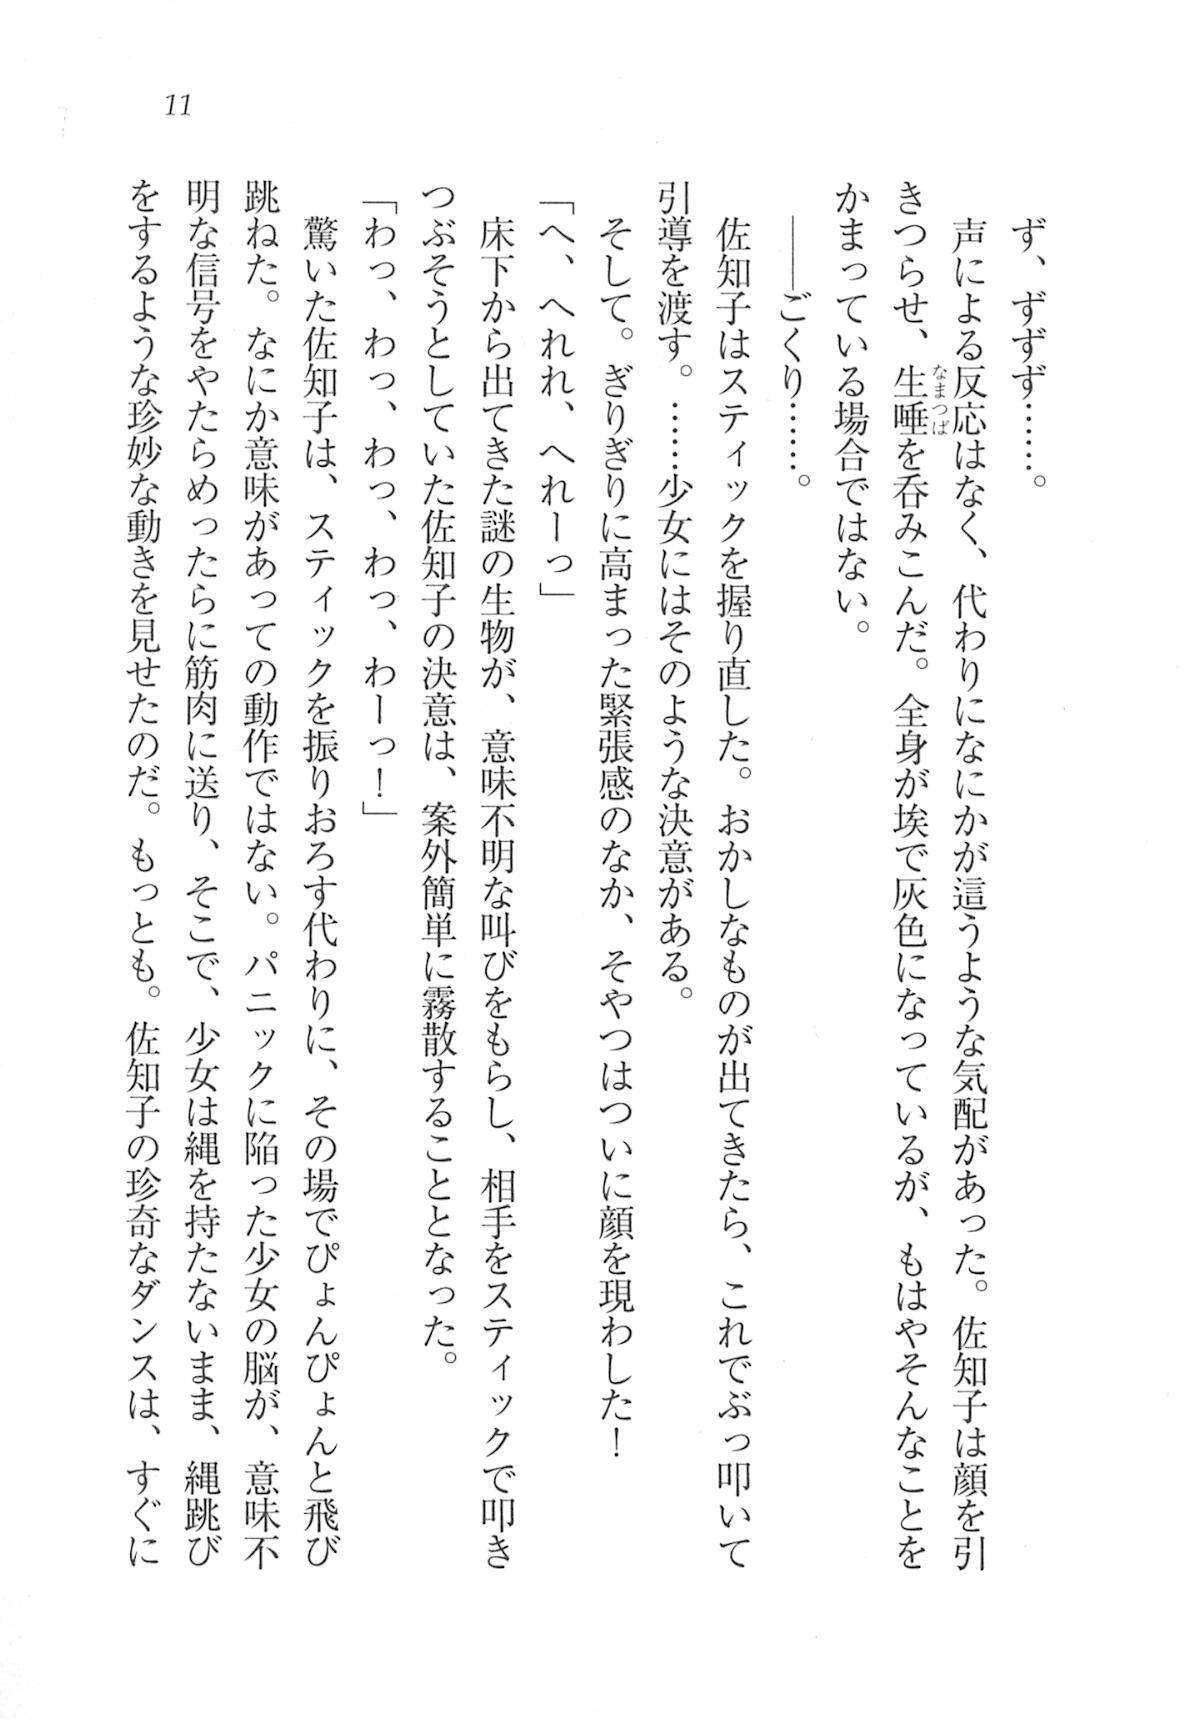 11
ず、ずずず……。
声による反応はなく、代わりになにかが這うような気配があった。佐知子は顔を引
きつらせ、生唾を呑みこんだ。全身が埃で灰色になっているが、もはやそんなことを
なまつば
かまっている場合ではない。
――ごくり……。
佐知子はスティックを握り直した。おかしなものが出てきたら、これでぶっ叩いて
引導を渡す。……少女にはそのような決意がある。
そして。ぎりぎりに高まった緊張感のなか、そやつはついに顔を現わした！
「へ、へれれ、へれーっ」
床下から出てきた謎の生物が、意味不明な叫びをもらし、相手をスティックで叩き
つぶそうとしていた佐知子の決意は、案外簡単に霧散することとなった。
「わっ、わっ、わっ、わっ、わーっ！」
驚いた佐知子は、スティックを振りおろす代わりに、その場でぴょんぴょんと飛び
跳ねた。なにか意味があっての動作ではない。パニックに陥った少女の脳が、意味不
明な信号をやたらめったらに筋肉に送り、そこで、少女は縄を持たないまま、縄跳び
をするような珍妙な動きを見せたのだ。もっとも。佐知子の珍奇なダンスは、すぐに